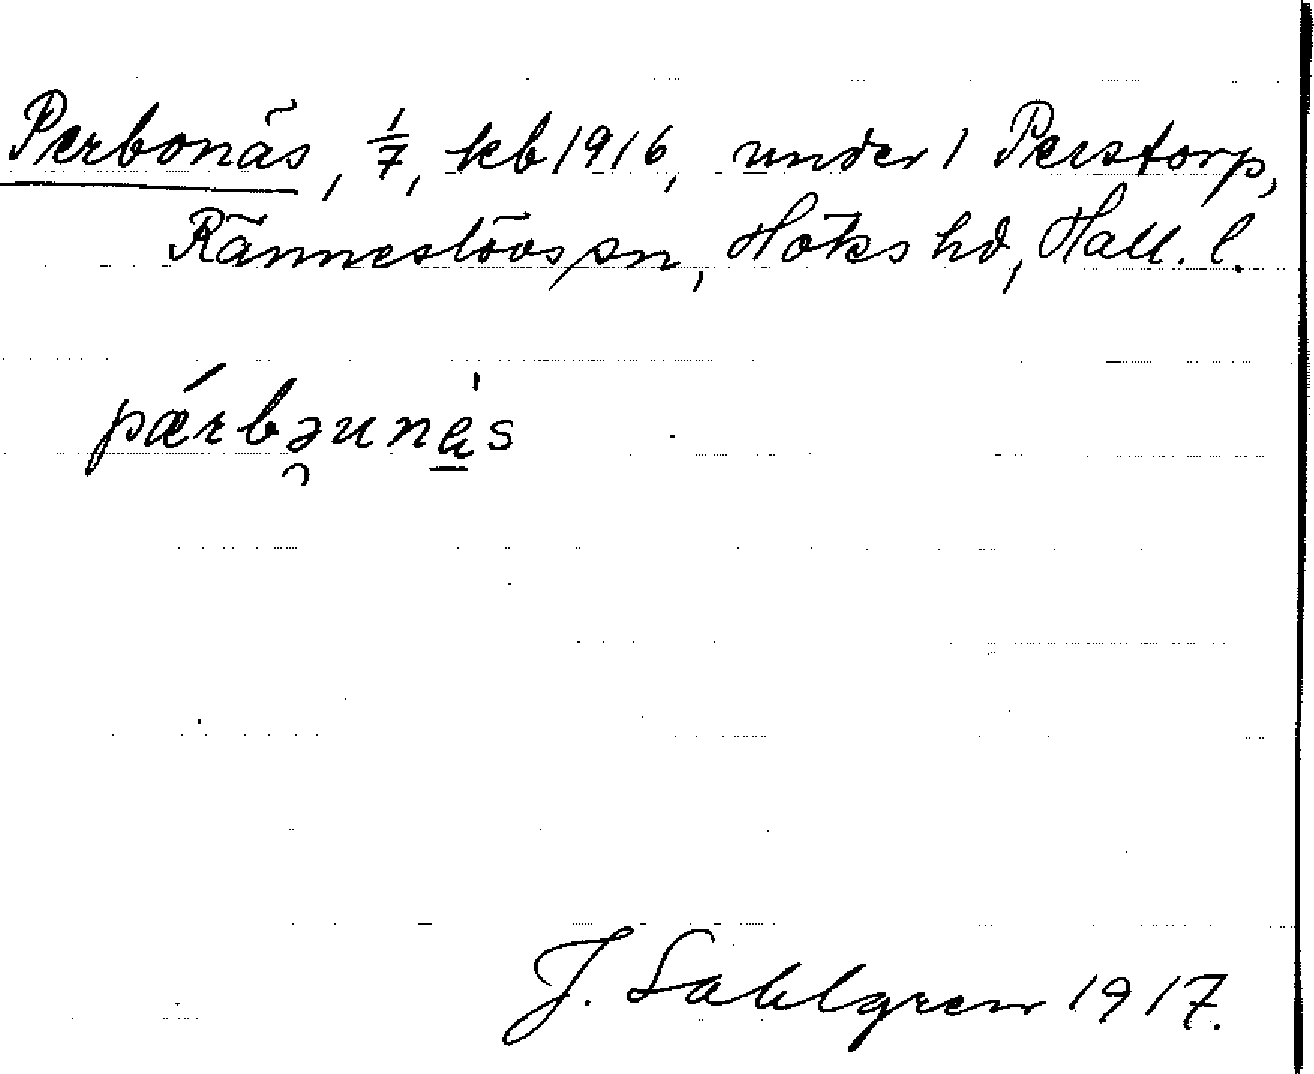 Perbonäs, 1/7, kb 1916, under 1 Perstorp,
Ränneslövs sn, Höks hd, Hall. l.
pǽrbə̯una̲̍s
J. Sahlgren 1917.